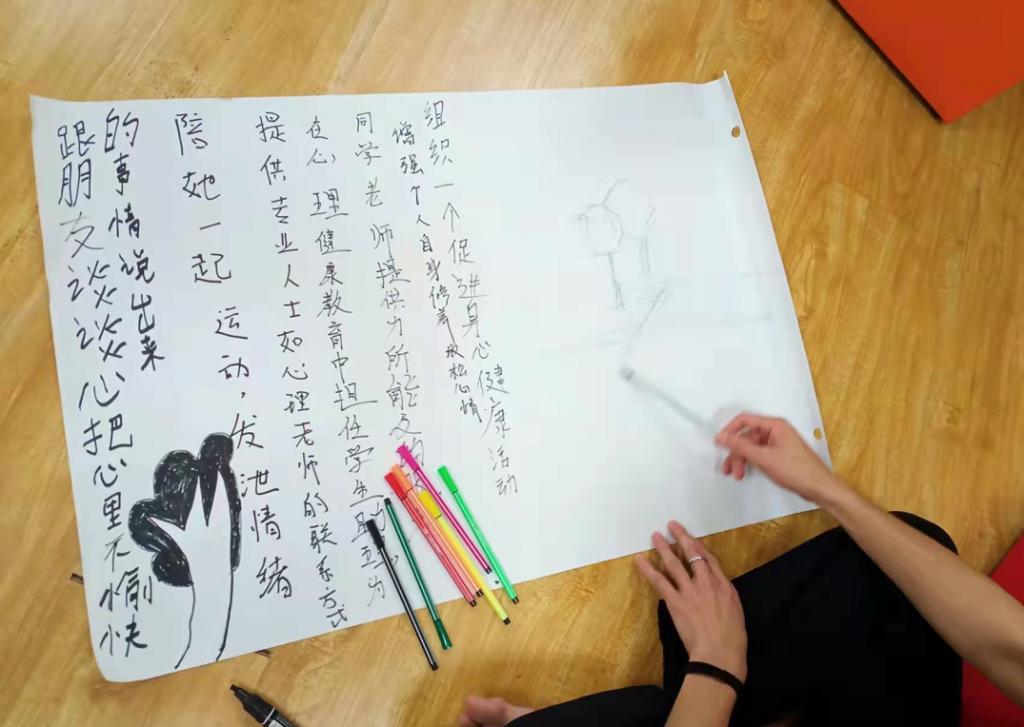 跟朋友谈谈心把心里不愉快
的事情说出来
陪她一起运动，发泄情绪
提供专业人士如心理老师的联系方式
在心理健康教育中担任学生助互为
同学老师提供力所能及的
增强个人自身修养放松心情
组织一个促进身心健康活动